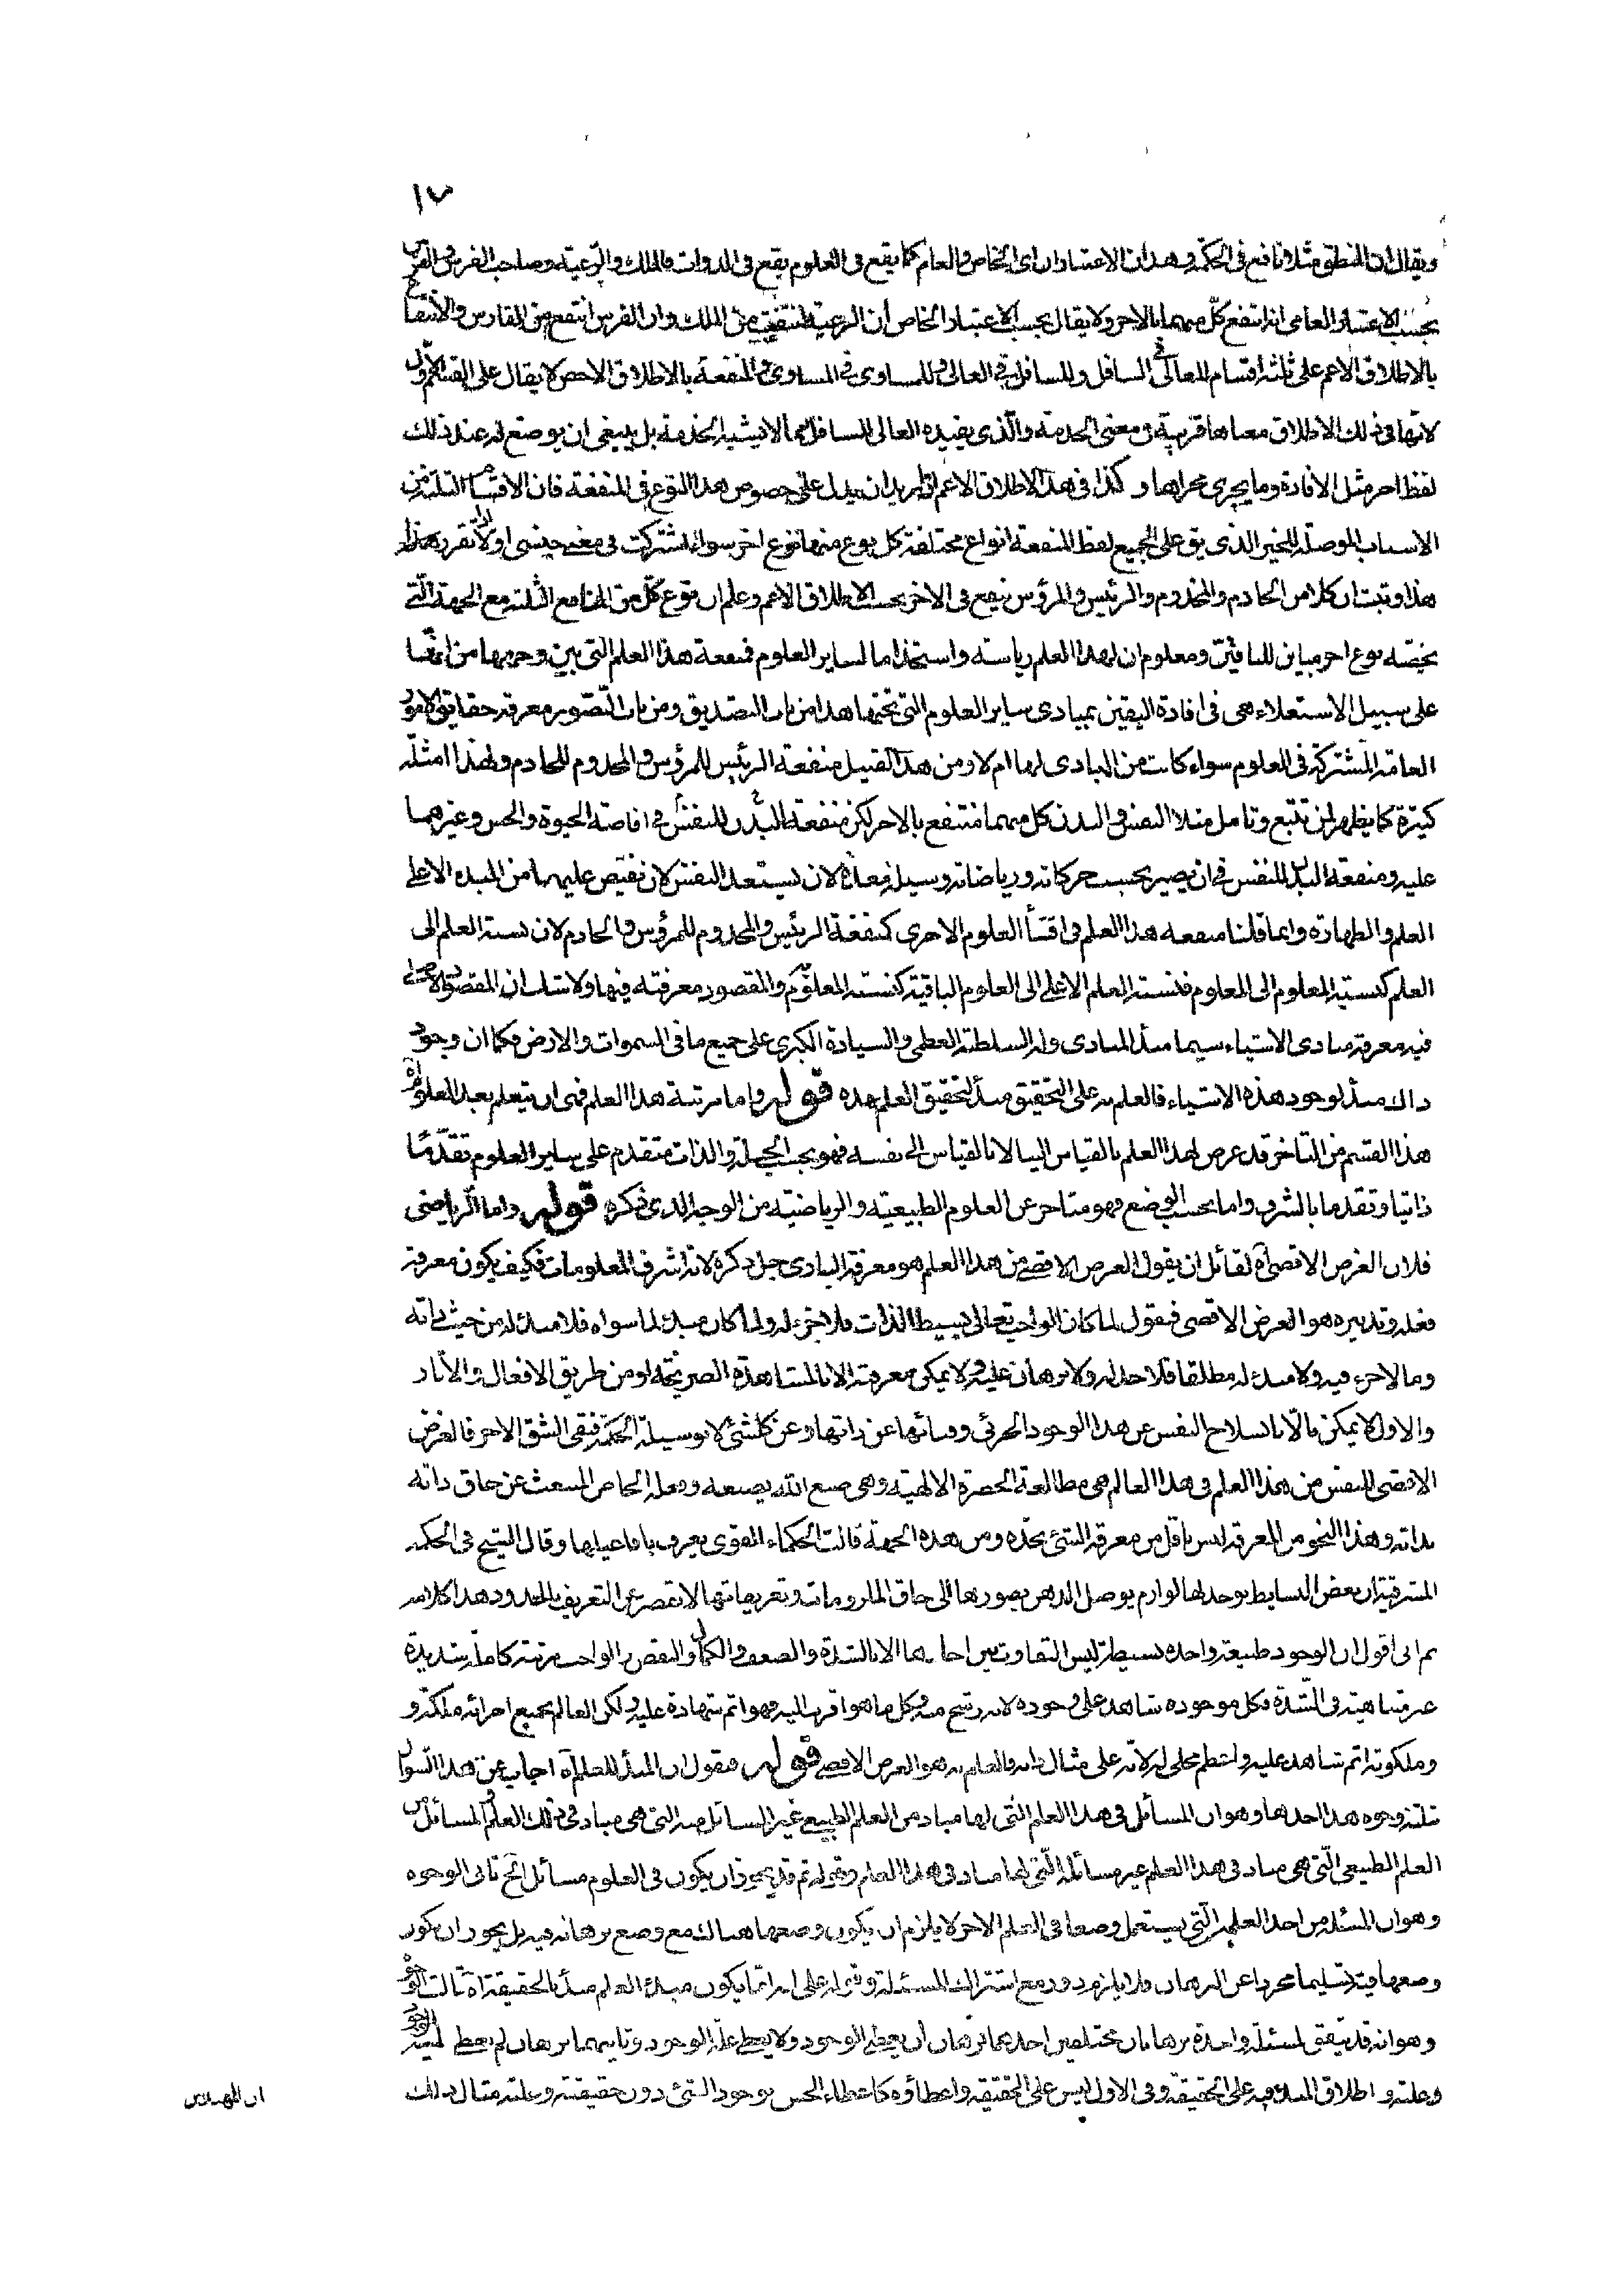 ١٧
ويقال ان المنطق مثلا نافع فى الحكمة وهذان الاعتباران اى الخاص والعام كما يقع فى العلوم يقع فى الذوات فالملك والرعية وصاحب الفرس والفرس
بحسب الاعتبار العامى انه انتفع كل منهما بالاخر ولا يقال بحسب الاعتبار الخاص ان الرعية انتفعت من الملك وان الفرس انتفع من الفارس والانتفاع
بالاطلاق الاعم على ثلثة اقسام للعالى فى السافل وللسافل فى العالى وللمساوى فى المساوى والمنفعة بالاطلاق الاخص لا يقال على القسم الاول
لانها فى ذلك الاطلاق معناها قريبة من معنى الخدمة والذى يفيده العالى للسافل مما لا يشبه الخدمة بل ينبغى ان يوضع له عند ذلك
لفظ اخر مثل الافادة وما يجرى مجراها وكذا فى هذا الاطلاق الاعم اذا اريد ان يدل على خصوص هذا النوع فى المنفعة فان الاقسام الثلثة من
الاسباب الموصلة للخير الذى يق على الجميع لفظ المنفعة انواع مختلفة كل نوع منها نوع اخر سواء اشتركت فى معنى جنسى او لا اذا تقرر هذا
هذا وثبت ان كلا من الخادم والمخدوم والرئيس والمرؤس ينفع فى الاخر بحسب الاطلاق الاعم وعلم ان نوع كل من المنافع الثلثة مع الجهة التى
يخصه نوع اخر مباين للباقيين ومعلوم ان لهذا العلم رياسة واستخداما لساير العلوم فمنفعة هذا العلم التى بين وجهها من انها
على سبيل الاستعلاء هى فى افادة اليقين بمبادى ساير العلوم التى تحتها هذا من باب التصديق ومن باب التصور معرفة حقايق الامور
العامة المشتركة فى العلوم سواء كانت من المبادى لها ام لا ومن هذا القبيل منفعة الرئيس للمرؤس والمخدوم للخادم ولهذا امثلة
كثيرة كما يظهر لمن تتبع وتامل مثلا النفس والبدن كل منهما منتفع بالاخر لكن منفعة البدن للنفس فى افاضة الحيوة والحس وغيرهما
عليه ومنفعة البدن للنفس فى ان يصير بحسب حركاته ورياضاته وسيلة معدة لان يستعد النفس لان تفيض عليها من المبدء الاعلى
العلم والطهارة وانما قلنا منفعة هذا العلم فى اقسام العلوم الاخرى كمنفعة الرئيس والمخدوم للمرؤس والخادم لان نسبة العلم الى
العلم كنسبة المعلوم الى المعلوم فنسبة العلم الاعلى الى العلوم الباقية كنسبة المعلوم والمقصود معرفته فيها ولا شك ان المقصود الاصلى
فيه معرفة مبادى الاشياء سيما مبدأ المبادى وله السلطنة العظمى والسيادة الكبرى على جميع ما فى السموات والارض فكما ان وجود
ذلك مبدأ لوجود هذه الاشياء فالعلم به على التحقيق مبدأ لتحقيق العلم بهذه قوله واما مرتبة هذا العلم فهى ان يتعلم بعد العلوم اه
هذا القسم من التاخر قد عرض لهذا العلم بالقياس الينا لا بالقياس الى نفسه فهو بحسب الجملة والذات متقدم على ساير العلوم تقدما
ذاتيا وتقدما بالشرف واما بحسب الوضع فهو متاخر عن العلوم الطبيعية والرياضية من الوجه الذى ذكره قوله واما الرياضى
فلان الغرض الاقصى آه لقائل ان يقول الغرض الاقصى من هذا العلم هو معرفة البارى جل ذكره لانه اشرف المعلومات فكيف يكون معرفة
فعله وتدبيره هو الغرض الاقصى فيقول لما كان الواجب تعالى بسيط الذات فلا جزء له ولما كان مبدء لما سواه فلا مبدء له من حيث ذاته
وما لا جزء فيه ولا مبدء له مطلقا فلا حد له ولا برهان عليه ولا يمكن معرفته الا بالمشاهدة الصريحة او من طريق الافعال والاثار
والاول لا يمكن الا بانسلاخ النفس عن هذا الوجود الجزئى وفنائها عن ذاتها وعن كلشئ لا بوسيلة الحكمة فبقى الشق الاخر فالغرض
الاقصى للنفس من هذا العلم فى هذا العالم هى مطالعة الحضرة الالهية وهى صنع الله بصنعه وفعله الخاص المنبعث عن حاق ذاته
بذاته وهذا النحو من المعرفة ليس باقل من معرفة الشئ بحده ومن هذه الجهة قالت الحكماء القوى يعرف بافاعيلها وقال الشيخ فى الحكمة
المشرقية ان بعض البسايط يوجد لها لوازم يوصل الذهن بصورها الى حاق الملزومات وتعريفاتها لا تقصر عن التعريف بالحدود هذا كلامه
ثم انى اقول ان الوجود طبيعة واحدة بسيطة ليس التفاوت بين احادها الا بالشدة والضعف والكمال والنقص والواجب مرتبة كاملة شديدة
غير متناهية فى الشدة فكل موجود شاهد على وجوده لانه رشح منه وكل ما هو اقرب اليه فهو اتم شهادة عليه ولكن العالم بجميع اجزائه ملكه و
وملكوته اتم شاهد عليه واعظم مجلى له لانه على مثال ذاته فالعلم به هو الغرض الاقصى قوله فنقول ان المبدأ للعلم اه اجاب عن هذا السؤال
بثلثة وجوه هذا احدها وهو ان المسائل فى هذا العلم التى لها مباد من العلم الطبيعى غير المسائل منه التى هى مباد فى ذلك العلم والمسائل من
العلم الطبيعى التى هى مباد فى هذا العلم غير مسائله التى لها مباد فى هذا العلم وقوله ثم قد يجوز ان يكون فى العلوم مسائل الخ ثانى الوجوه
وهو ان المسئلة من احد العلمين التى يستعمل وضعا فى العلم الاخر لا يلزم ان يكون وضعها هناك مع وضع برهانه فيه بل يجوز ان يكون
وضعها فيه تسليما مجردا عن البرهان فلا يلزم دور مع اشتراك المسئلة وقوله على انه انما يكون مبدء العلم مبدأ بالحقيقة اه ثالث الوجوه
وهو انه قد يتفق لمسئلة واحدة برهانان مختلفين احدهما برهان ان يعطى الوجود ولا يعطى علة الوجود وثانيهما برهان لم يعطى لمية الوجود
وعلته واطلاق المبدء فيه على الحقيقة وفى الاول ليس على الحقيقة واعطاؤه كاعطاء الحس بوجود الشئ دون حقيقته وعلته مثال ذلك
ان المهندس